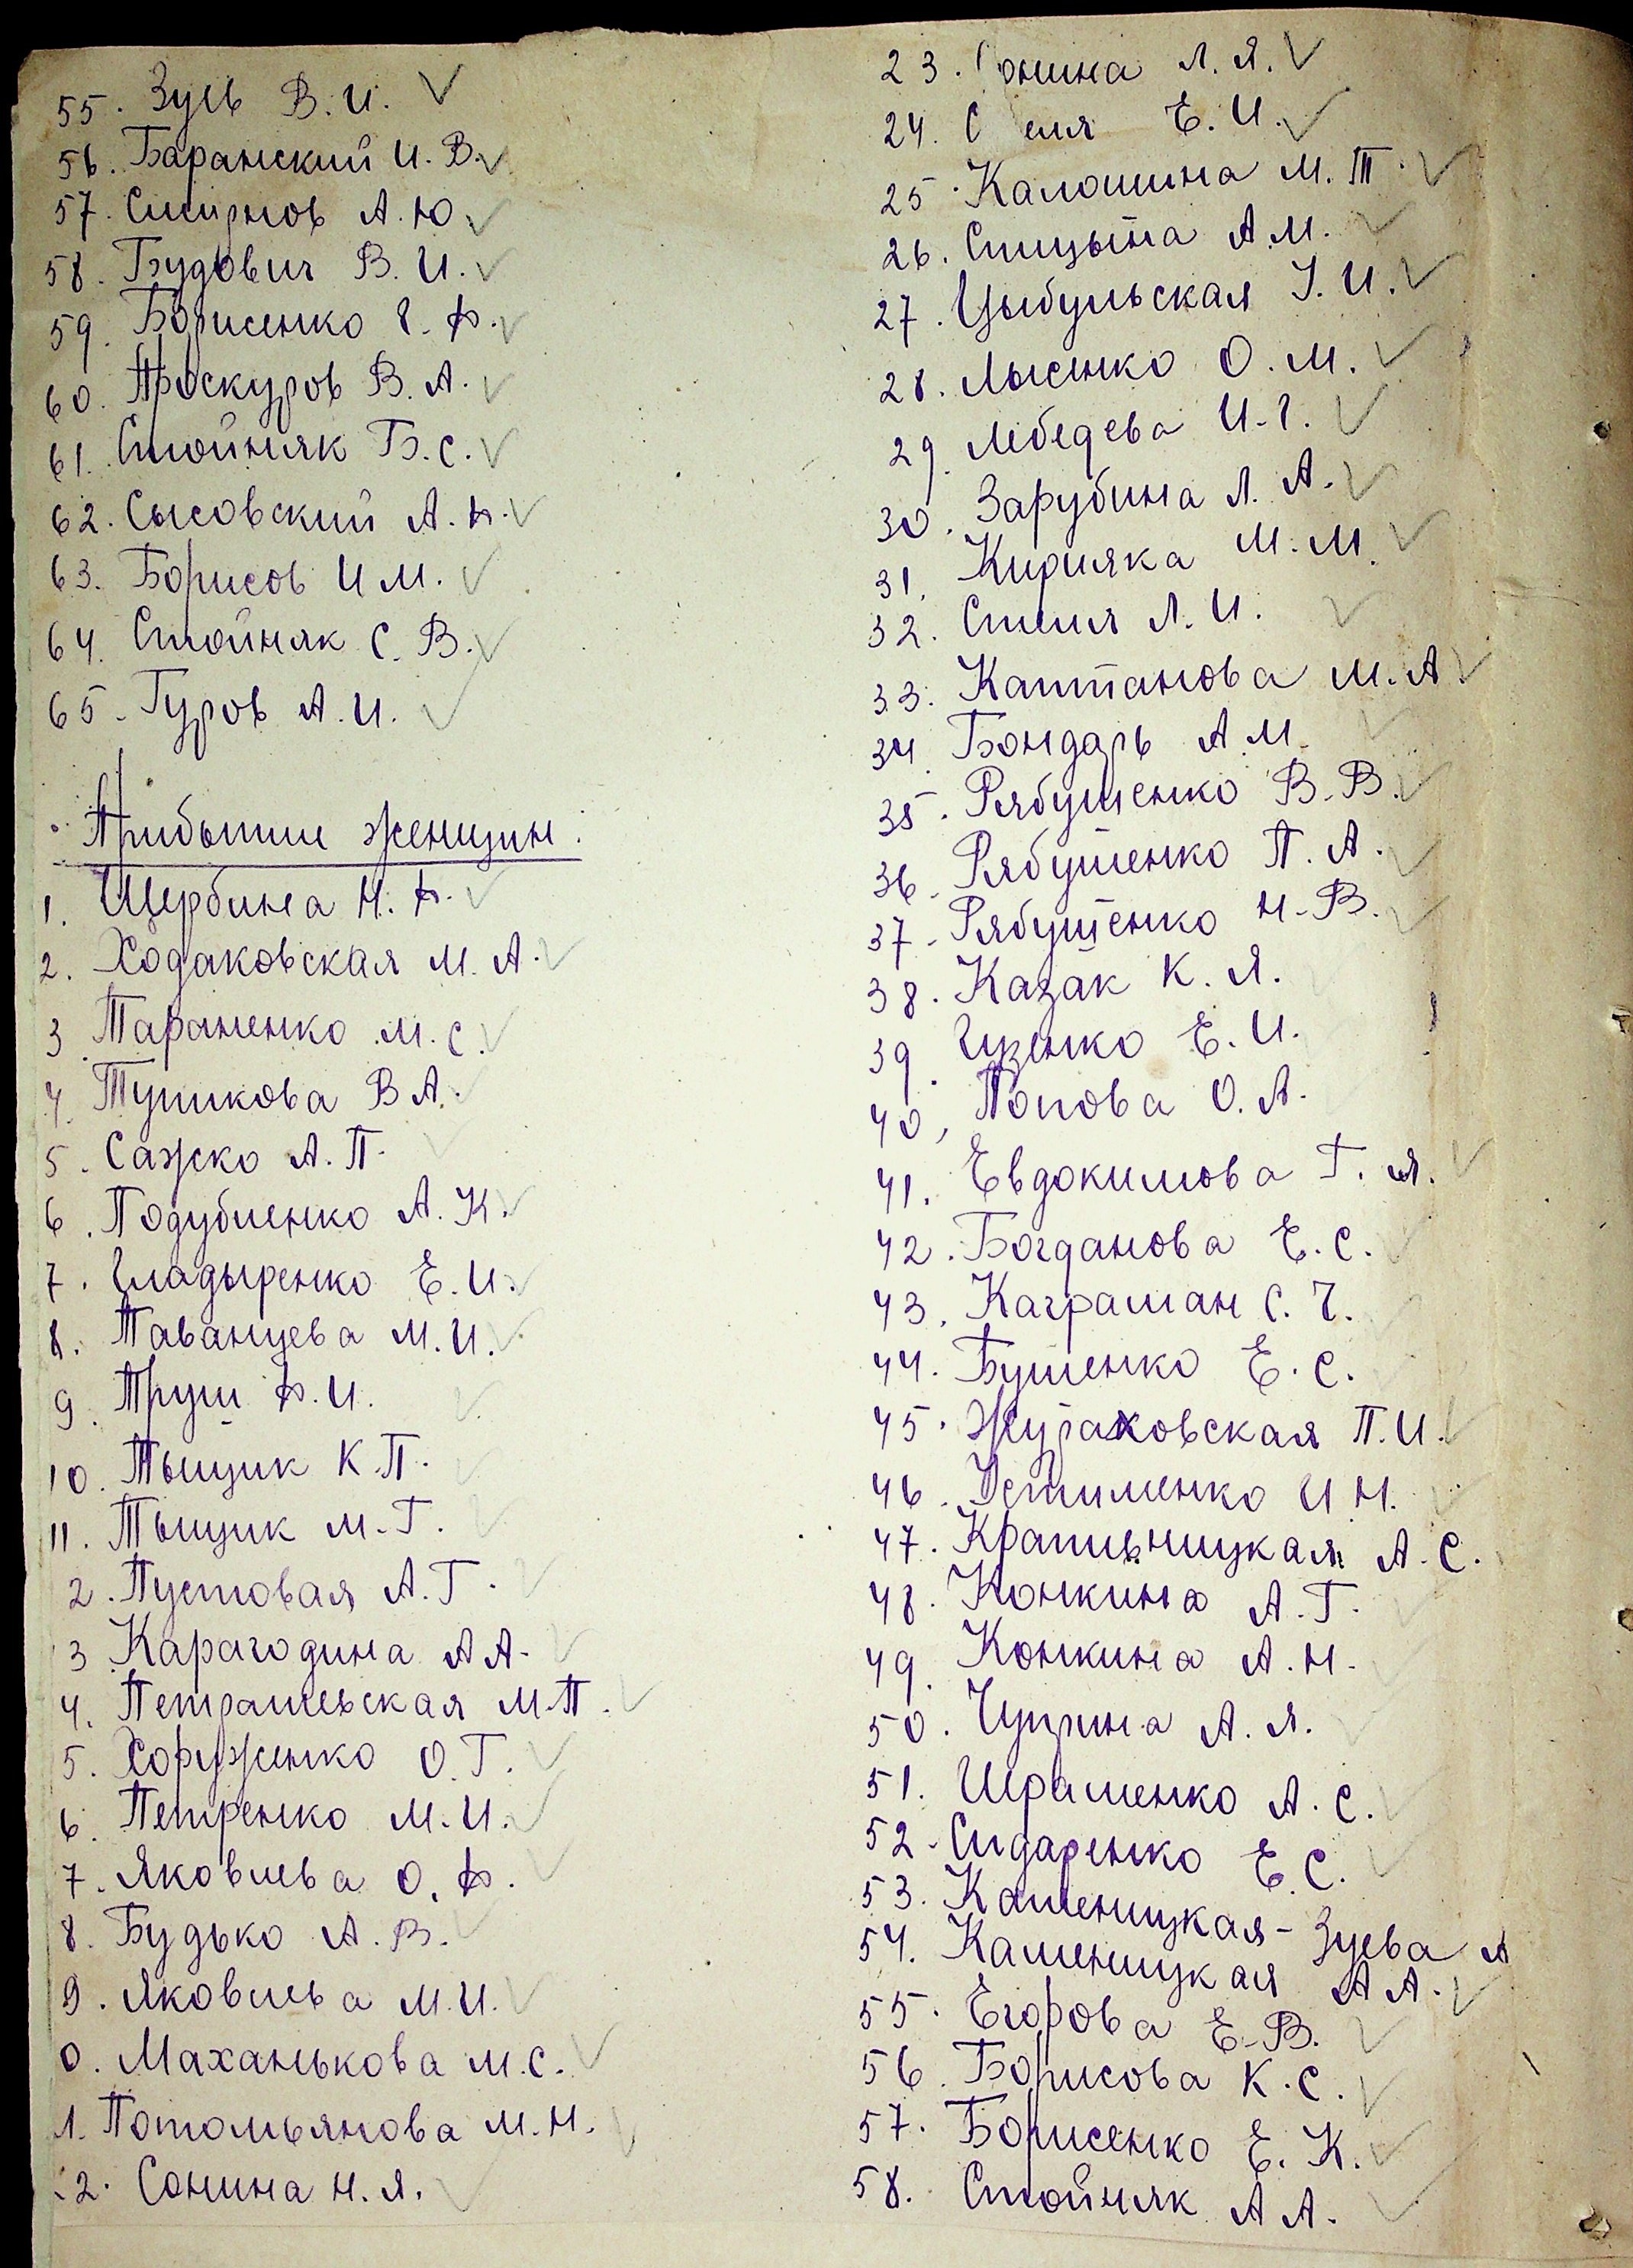 55. Зусь В. И.
56. Баранский И. В.
57. Смирнов А. Ю.
58. Будович В. И.
59. Борисенко Г. Ф.
60. Проскуров В. А.
61. Стойняк Б. С.
62. Сысовский А. Ф.
63. Борисов И М.
64. Стойняк С. В.
65. Гуров А. И.
Прибывшие женщин:
1. Щербина Н. Ф.
2. Ходаковская М. А.
3. Тараненко М. С.
4. Тупикова В А.
5. Сажко А. П.
6. Подубиенко А. К.
7. Гладыренко Е. И.
8. Таванцева М. И.
9. Пруш Ф. И.
10. Тыщик К. П.
11. Тыщик М. Г.
2. Пустовая А. Г.
3. Карагодина А А.
4. Петрашевская М. П.
5. Хоруженко О. Г.
6. Петренко М. И.
7. Яковлева О. Ф.
8. Будько А. В.
9. Яковлева М. И.
0. Маханькова М. С.
1. Потомьянова М. Н.
2. Сонина Н. Я.
23. Сонина Л. Я.
24. Е. И.
25. Калошина М. Т.
26. Спицына А. М.
27. Цыбульская У. И.
28. Лысенко О. М.
29. Лебедева И. Г.
30. Зарубина Л. А.
31. Кирияка М. М.
32. Л. И.
33. Каптанова М. А
34. Бондарь А М.
35. Рябушенко В. В.
36. Рябушенко П. А.
37. Рябушенко Н. В.
38. Казак К. Я.
39. Гузенко Е. И.
40. Попова О. А.
41. Евдокимова Г. Я.
42. Богданова Е. С.
43. Каграман С. Г.
44. Бушенко Е. С.
45. Жураховская П. И.
46. Устименко И Н.
47. Крапивницкая А. С.
48. Конкина А. Г.
49. Конкина А. Н.
50. Чуприна А. Я.
51. Ираменко А. С.
52. Сидаренко Е. С.
53. Каменицкая-Зуева А
54. Каменицкая А А.
55. Егорова Е. В.
56. Борисова К. С.
57. Борисенко Е. К.
58. Стойняк А А.